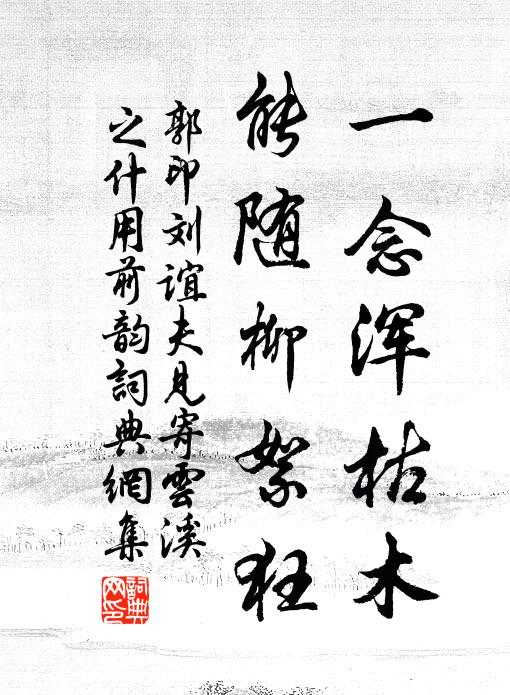 一念浑枯木
能随柳絮狂
郭印刘谊夫见寄雲溪
之什用前韵詞典網集
詞典
网印